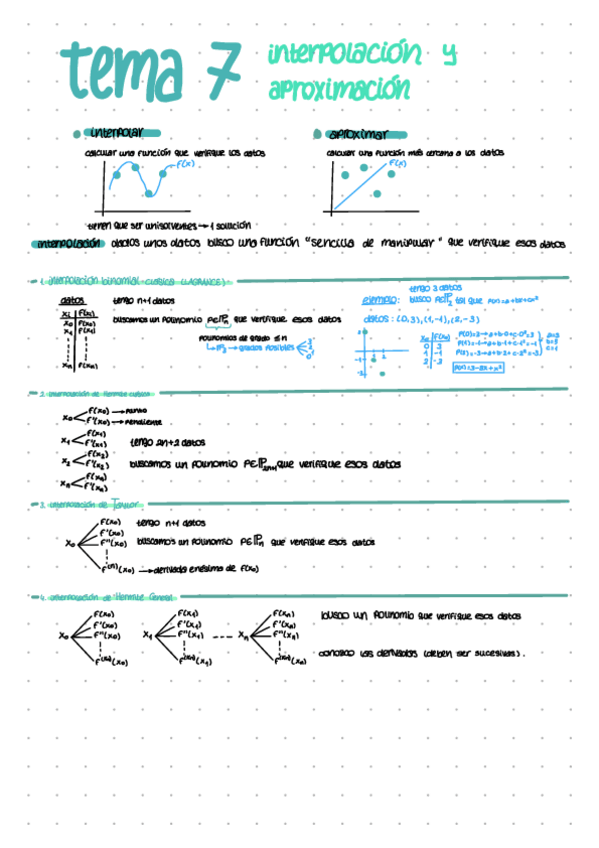 tema 7 interpolación y
aproximación
interpolar
calcular una función que verifique los datos
f(x)
tienen que ser unisolventes → 1 solución
aproximar
calcular una función más cercana a los datos
f(x)
interpolación dados unos datos busco una función "sencilla de manipular" que verifique esos datos
1. interpolación binomial-clásica (LAGRANGE)
datos
tengo n+1 datos
xi f(xi)
x0 f(x0)
x1 f(x1)
f(xn)
buscamos un polinomio P∈ℙn que verifique esos datos
polinomios de grado ≤n
grados posibles
tengo 3 datos
ejemplo: busco P∈ℙ2 tal que P(x)=a+bx+cx²
datos: (0,3),(1,-1),(2,-3)
xi f(xi)
0 3
1 -1
2 -3
P(0)=3→a+b·0+c·0²=3
P(1)=-1→a+b·1+c·1²=-1
P(2)=-3→a+b·2+c·2²=-3
a=3
b=-5
c=1
P(x)=3-5x+x²
2. interpolación de Hermite clásica
x0 f(x0) → punto
f'(x0) → pendiente
x1 f(x1)
f'(x1)
tengo 2n+2 datos
x2 f(x2)
f'(x2)
buscamos un polinomio P∈ℙ2n+1 que verifique esos datos
xn f(xn)
f'(xn)
3. interpolación de Taylor
x0 f(x0)
f'(x0)
f''(x0)
f(n)(x0) → derivada enésima de f(x0)
tengo n+1 datos
buscamos un polinomio P∈ℙn que verifique esos datos
4. interpolación de Hermite General
x0 f(x0)
f'(x0)
f''(x0)
x1 f(x1)
f'(x1)
f''(x1)
xn f(xn)
f'(xn)
f''(xn)
busco un polinomio que verifique esos datos
conozco las derivadas (deben ser sucesivas).